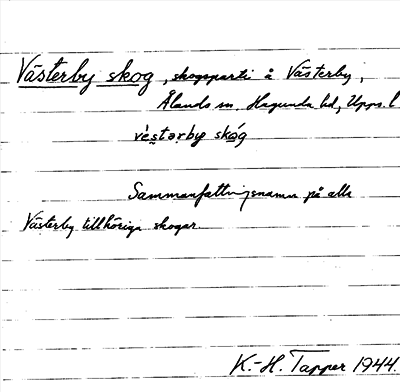 Västerby skog, skogsparti å Västerby,
Ålands sn, Hagunda hd, Upps. l
vèstərby skóg
Sammanfattningsnamn på alla
Västerby tillhöriga skogar.
K.-H. Tapper 1944.